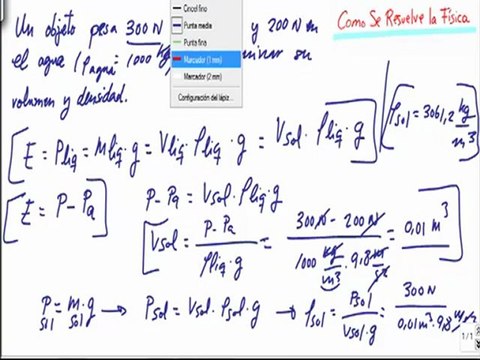 Un objeto pesa 300 N y 200 N en
el agua (ρagua = 1000 kg minar su
volumen y densidad.
Cincel fino
Punta media
Punta fina
Marcador (1 mm)
Marcador (2 mm)
Configuración del lápiz...
Como Se Resuelve la Física
[E = Pliq = mliq·g = Vliq·ρliq·g = Vsol·ρliq·g]
[ρsol = 3061,2 kg/m³]
[E = P - Pa]
P - Pa = Vsol·ρliq·g
[Vsol = (P - Pa)/(ρliq·g) = (300 N - 200 N)/(1000 kg/m³ · 9,8 m/s²) = 0,01 m³]
Psol = msol·g → Psol = Vsol·ρsol·g → ρsol = Psol/(Vsol·g) = 300 N/(0,01 m³·9,8
1/1